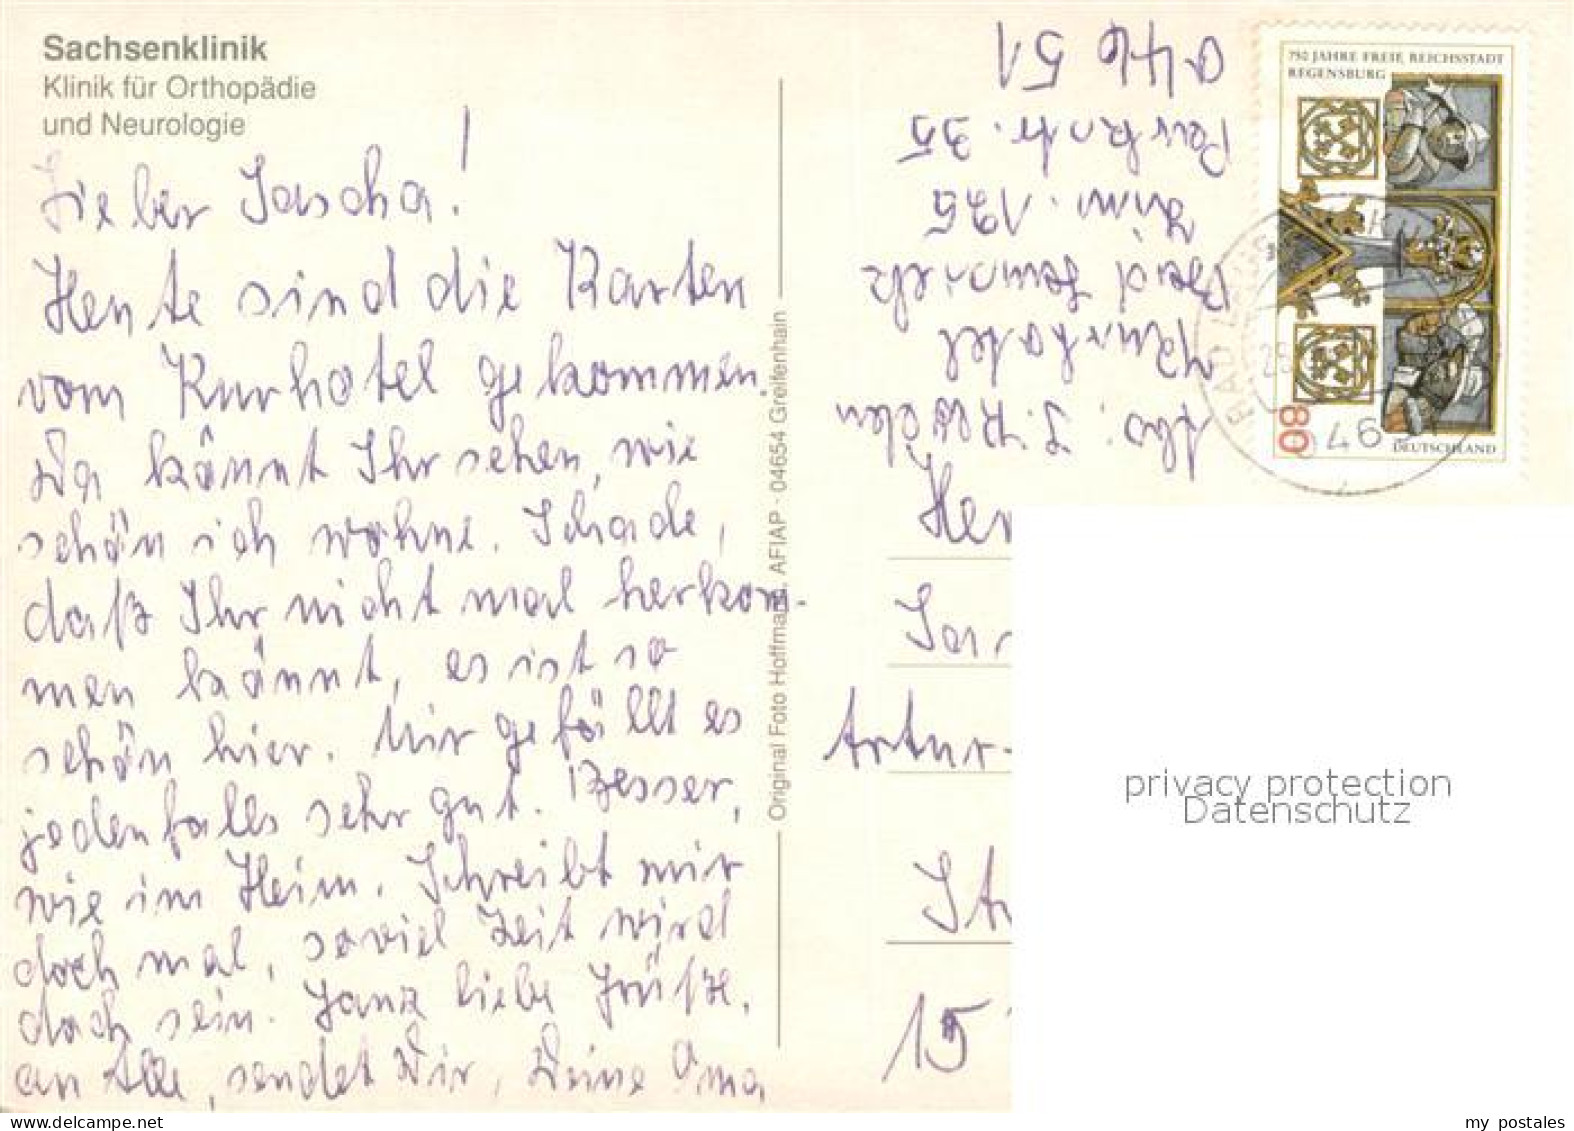 Sachsenklinik
Klinik für Orthopädie
und Neurologie
Lieber Sascha!
Heute sind die Karten
vom Kurhotel gekommen
Da könnt Ihr sehen, wie
schön ich wohne. Schade,
daß Ihr nicht mal herkom-
men könnt, es ist so
schön hier. Mir gefällt es
jedenfalls sehr gut. Besser,
wie im Heim. Schreibt mir
doch mal, soviel Zeit wird
doch sein. Ganz liebe Grüße,
an Alle, sendet Dir, Deine Oma
Original Foto Hoffmann, AFIAP · 04654 Greifenhain
Abs.:
Kurhotel
Bad Lausick
Zim. 125
Parkstr. 35
04651
750 JAHRE FREIE REICHSSTADT
REGENSBURG
80
DEUTSCHLAND
BAD LAUSICK
046
Her
Sar
Artur-
Str
15
privacy protection
Datenschutz
my postales